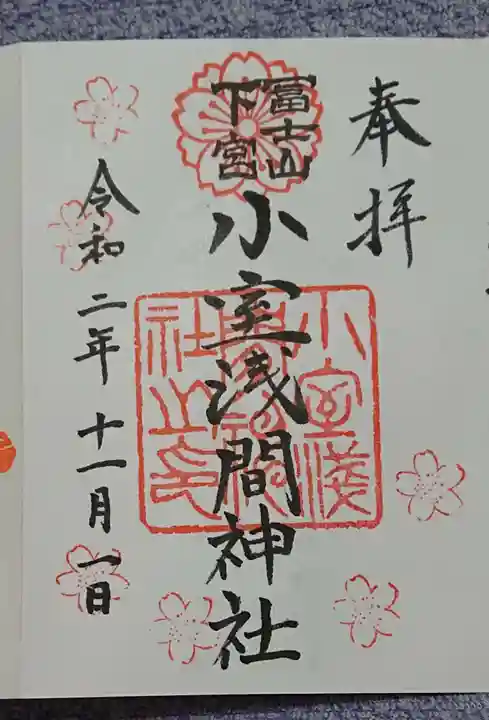 奉拝
冨士山
下宮
小室浅間神社
小室浅
社之印
令和二年十一月一日